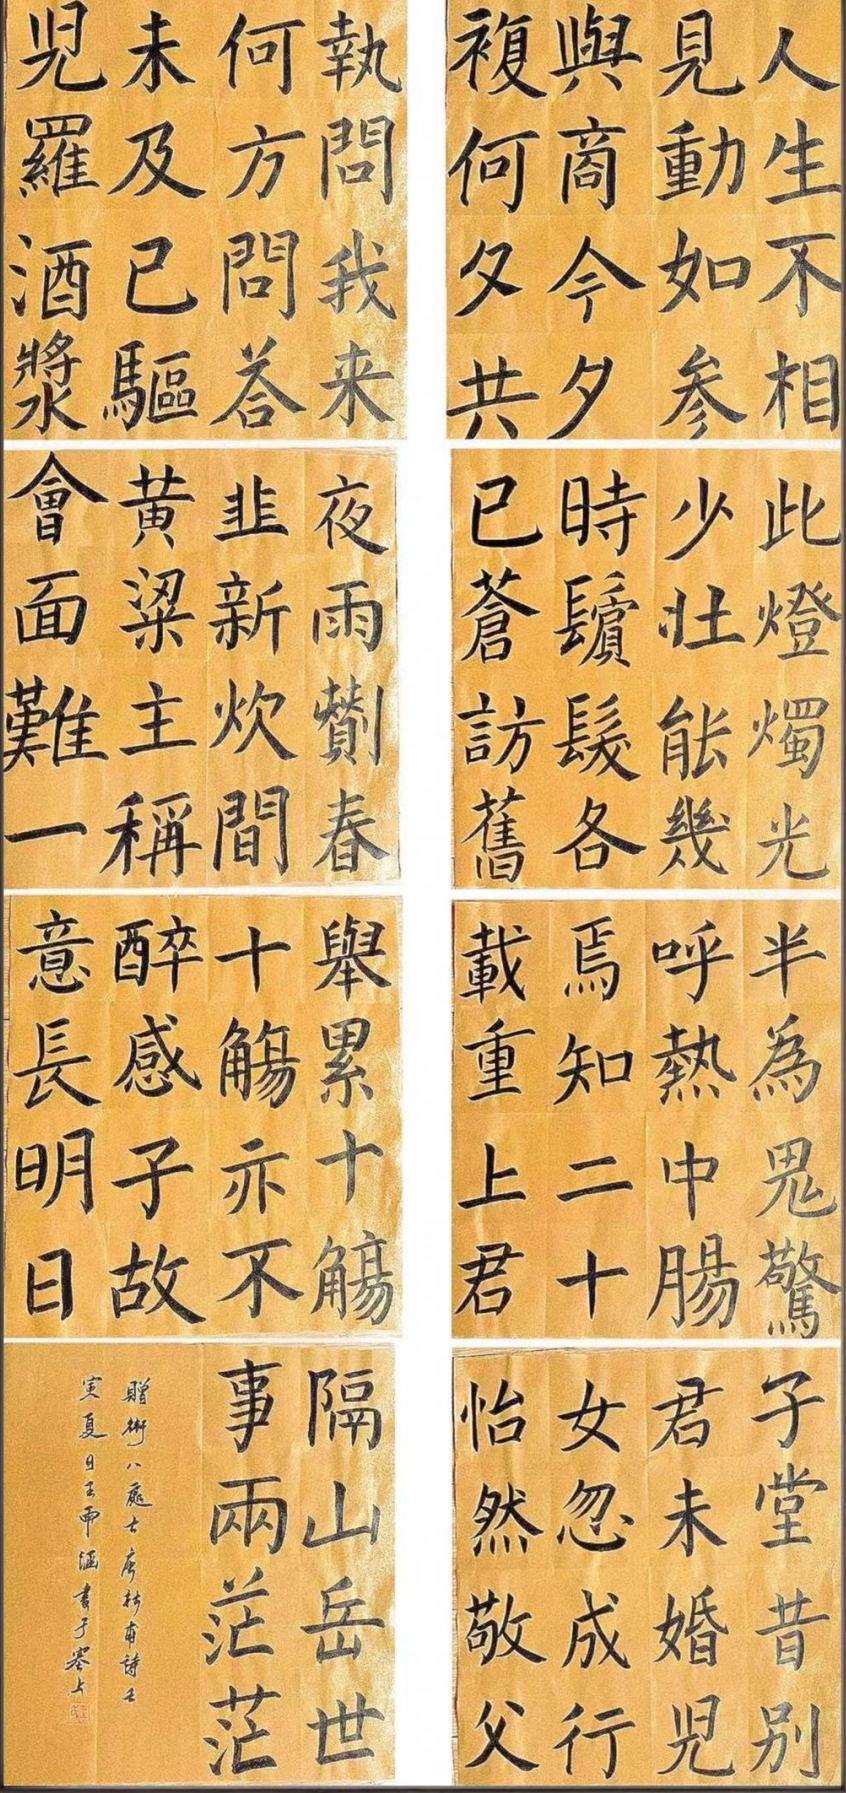 人生不相
見動如参
與商今夕
複何夕共
此燈燭光
少壯能幾
時鬢髮各
已蒼訪舊
半為鬼驚
呼熱中腸
焉知二十
載重上君
子堂昔別
君未婚児
女忽成行
怡然敬父
執問我来
何方問荅
未及已驅
児羅酒漿
夜雨劗春
韭新炊間
黄粱主稱
會面難一
舉累十觴
十觴亦不
醉感子故
意長明日
隔山岳世
事兩茫茫
贈衛八處士唐杜甫詩壬
寅夏日王雨涵書于塞上